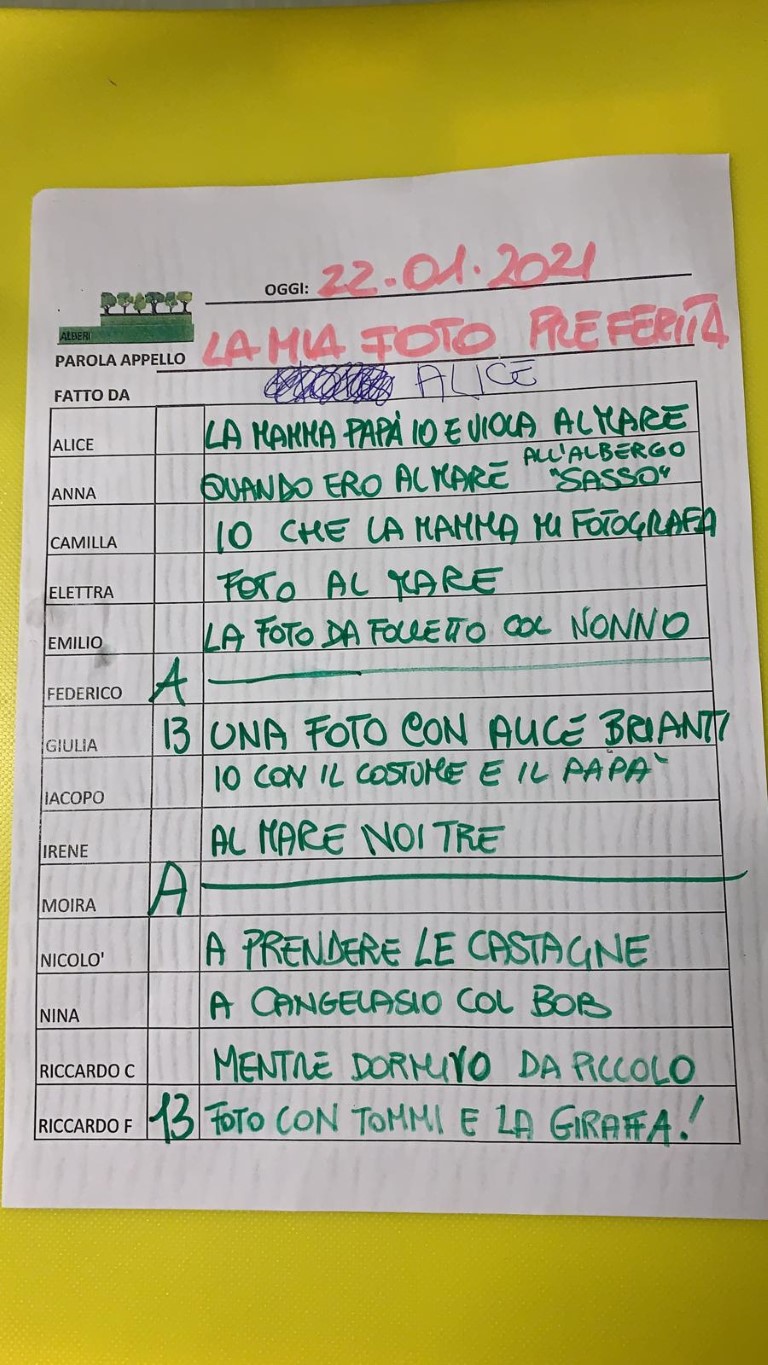 OGGI: 22.01.2021
ALBERI
PAROLA APPELLO LA MIA FOTO PREFERITA
FATTO DA ALICE
ALICE LA MAMMA PAPÀ IO E VIOLA AL MARE
ANNA QUANDO ERO AL MARE ALL'ALBERGO "SASSO"
CAMILLA IO CHE LA MAMMA MI FOTOGRAFA
ELETTRA FOTO AL MARE
EMILIO LA FOTO DA FOLLETTO COL NONNO
FEDERICO A
GIULIA 13 UNA FOTO CON ALICE BRIANTI
IACOPO IO CON IL COSTUME E IL PAPÀ
IRENE AL MARE NOI TRE
MOIRA A
NICOLO' A PRENDERE LE CASTAGNE
NINA A CANGELASIO COL BOB
RICCARDO C MENTRE DORMIVO DA PICCOLO
RICCARDO F 13 FOTO CON TOMMI E LA GIRAFFA!